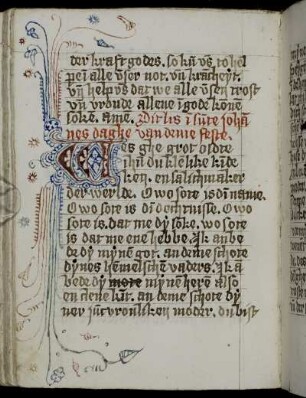 der kraft godes. so kū vs to hel
pe ī alle vser not. vn̄ krācheyt.
vn̄ help vs dat we alle vsen trost
vn̄ vroude allene ī gode kōne
soke. amē. Dit is ī sūte johā
nes daghe van deme feste.
es ghe grot
ihū du
en salichmaker
der werlde. O wo sote is dī name.
O wo sote is dī
sote is. dat me dy sōke. wo sote
is dat me ene hebbe. Ik anbe
de dy myne got. an deme schote
dynes hēmelschen vaders. Ik ā
bede dy myne here also
en clene kīt. an deme schote dy
ner jūcvrouliken moder. du bist